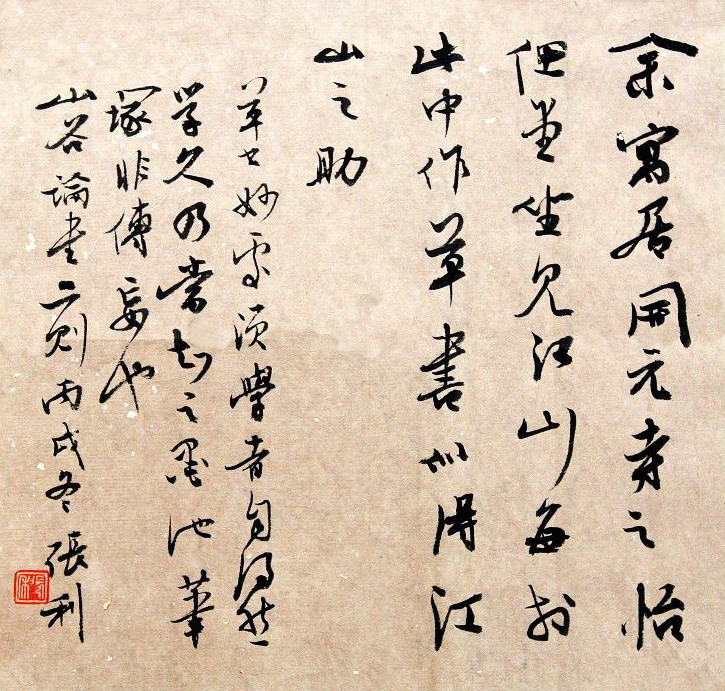 余寓居開元寺之怡
偲堂坐見江山每於
此中作草書似得江
山之助
草书妙處須學者自得然
学久乃當知之墨池筆
塚非傳妄也
山谷論書二則丙戌冬張利